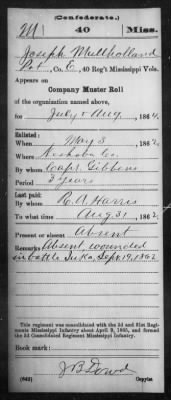 (Confederate.)
M 40 Miss.
Joseph Mullholland
Pvt., Co. E, 40 Reg't Mississippi Vols.
Appears on
Company Muster Roll
of the organization named above,
for July & Aug, 1864.
Enlisted:
When May 3, 1862
Where Neshoba Co.
By whom Capt. Gibbens
Period 3 years
Last paid:
By whom R. A. Harris
To what time Aug 31, 1862
Present or absent Absent
Remarks Absent, wounded
in battle Iuka, Sept 19, 1862
This regiment was consolidated with the 3d and 31st Regiments
Mississippi Infantry about April 9, 1865, and formed
the 3d Consolidated Regiment Mississippi Infantry.
Book mark:
J B Dowd
(642) Copyist.